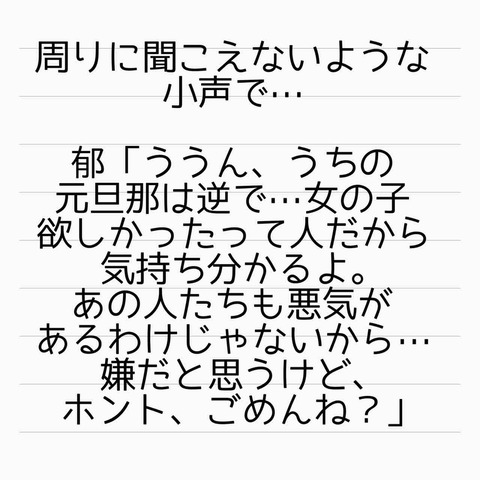 周りに聞こえないような
小声で…
郁「ううん、うちの
元旦那は逆で…女の子
欲しかったって人だから
気持ち分かるよ。
あの人たちも悪気が
あるわけじゃないから…
嫌だと思うけど、
ホント、ごめんね？」